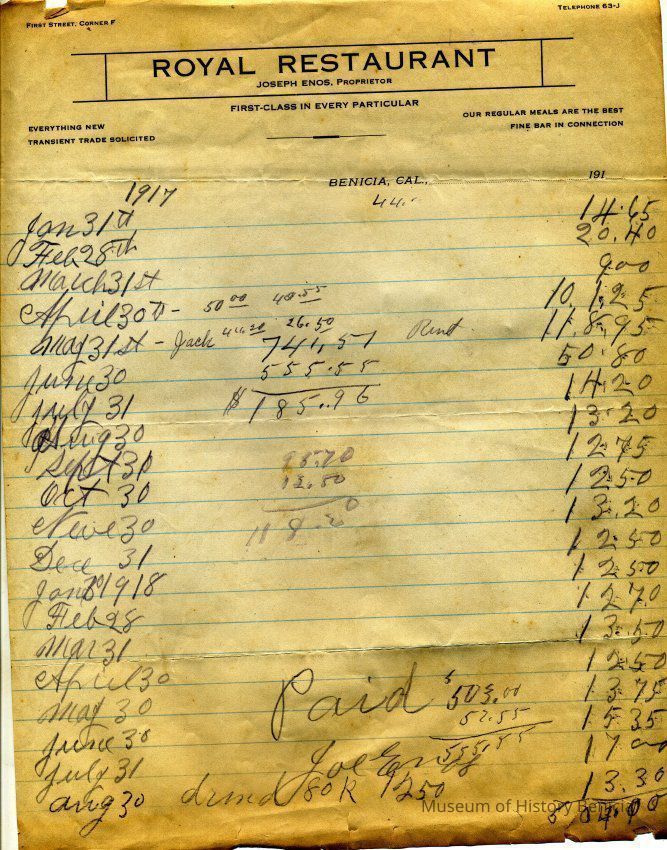 FIRST STREET, CORNER F
TELEPHONE 63-J
ROYAL RESTAURANT
JOSEPH ENOS, PROPRIETOR
FIRST-CLASS IN EVERY PARTICULAR
EVERYTHING NEW
TRANSIENT TRADE SOLICITED
OUR REGULAR MEALS ARE THE BEST
FINE BAR IN CONNECTION
BENICIA, CAL., 191
1917 44.
Jan 31th 14.65
Feb 28th 20.40
March 31st 900
April 30th - 50 00 48.55 10,1.25
May 31st - Jack 26.50 Rent 11,8,95
741,51
June 30 555.55 50.80
July 31 $185.96 14.20
Aug 30 13.20
Sept 30 95.70 12.75
Oct 30 12.50 12.50
Nove 30 118.20 13.20
Dece 31 12.50
Jan 1918 12.50
Feb 28 12.70
Mar 31 13.50
April 30 12.50
May 30 Paid $503.00 13.75
52.55
June 30 555.55 15.35
July 31 Joe Enos 17.00
Aug 30 1250 13.30
Museum of History Benicia